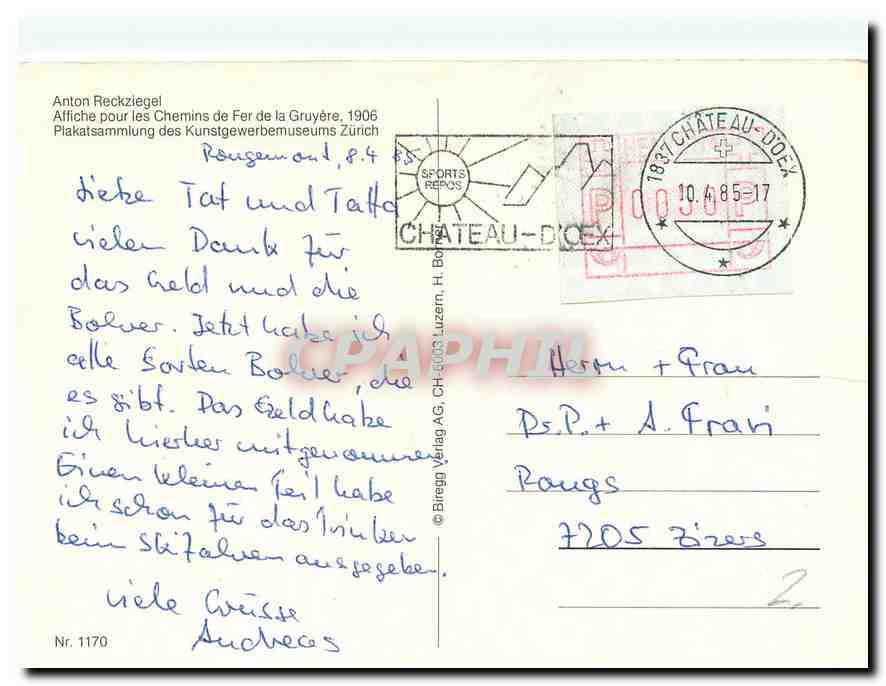 Anton Reckziegel
Affiche pour les Chemins de Fer de la Gruyère, 1906
Plakatsammlung des Kunstgewerbemuseums Zürich
Rougemont, 8.4.85.
Liebe Tat und Tatta
vielen Dank für
das Geld und die
Bolver. Jetzt habe ich
alle Sorten Bolver, die
es gibt. Das Geld habe
ich hierher mitgenommen.
Einen kleinen Teil habe
ich schon für das Trinken
beim Skifahren ausgegeben.
viele Grüsse
Andreas
Nr. 1170
© Biregg Verlag AG, CH-6003 Luzern, H. Borner
SPORTS
REPOS
CHATEAU-D'OEX
1837 CHÂTEAU-D'OEX
10.4.85-17
P 0050 P
CPAPHIL
Herrn + Frau
Dr. P. + A. Fravi
Rongs
7205 Zizers
2.